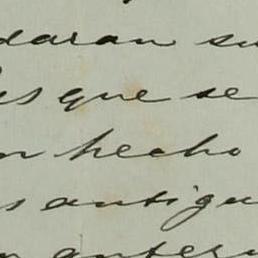 daran su
es que se
n hecho
s antigu
n anter